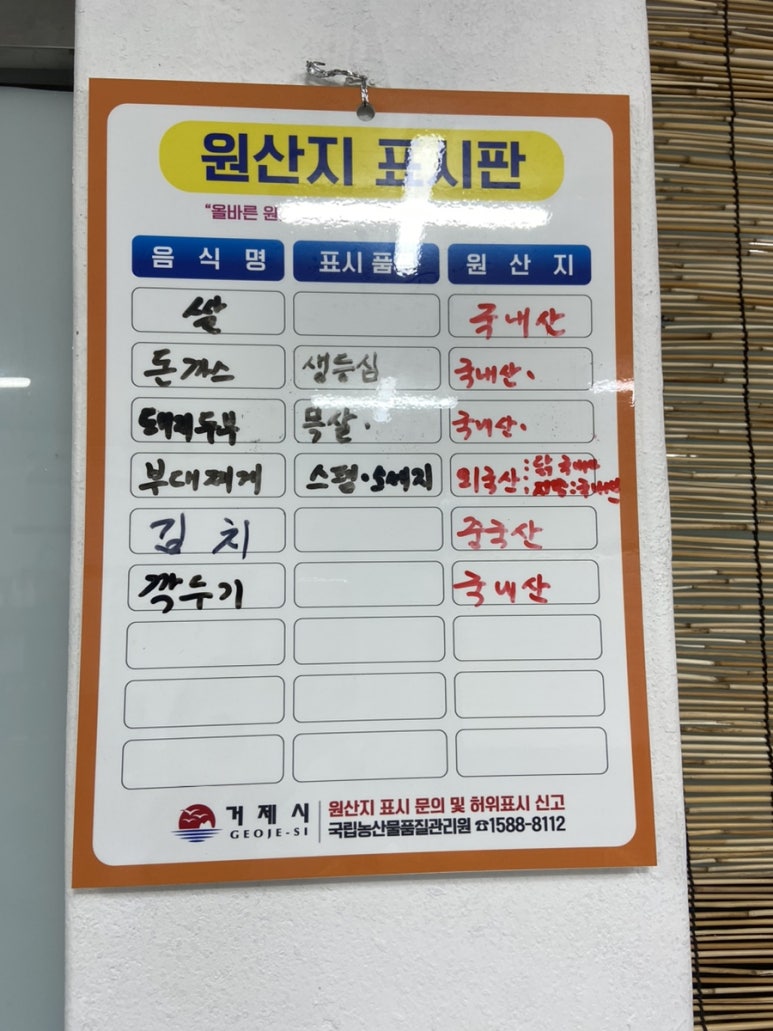 원산지 표시판
"올바른 원
음식명 표시품 원산지
쌀 국내산
돈까스 생등심 국내산.
돼지두부 목살. 국내산.
부대찌게 스팸.소세지 외국산 : 닭 국내산
김치 중국산
깍두기 국내산
거제시
GEOJE-SI
원산지 표시 문의 및 허위표시 신고
국립농산물품질관리원 ☎1588-8112